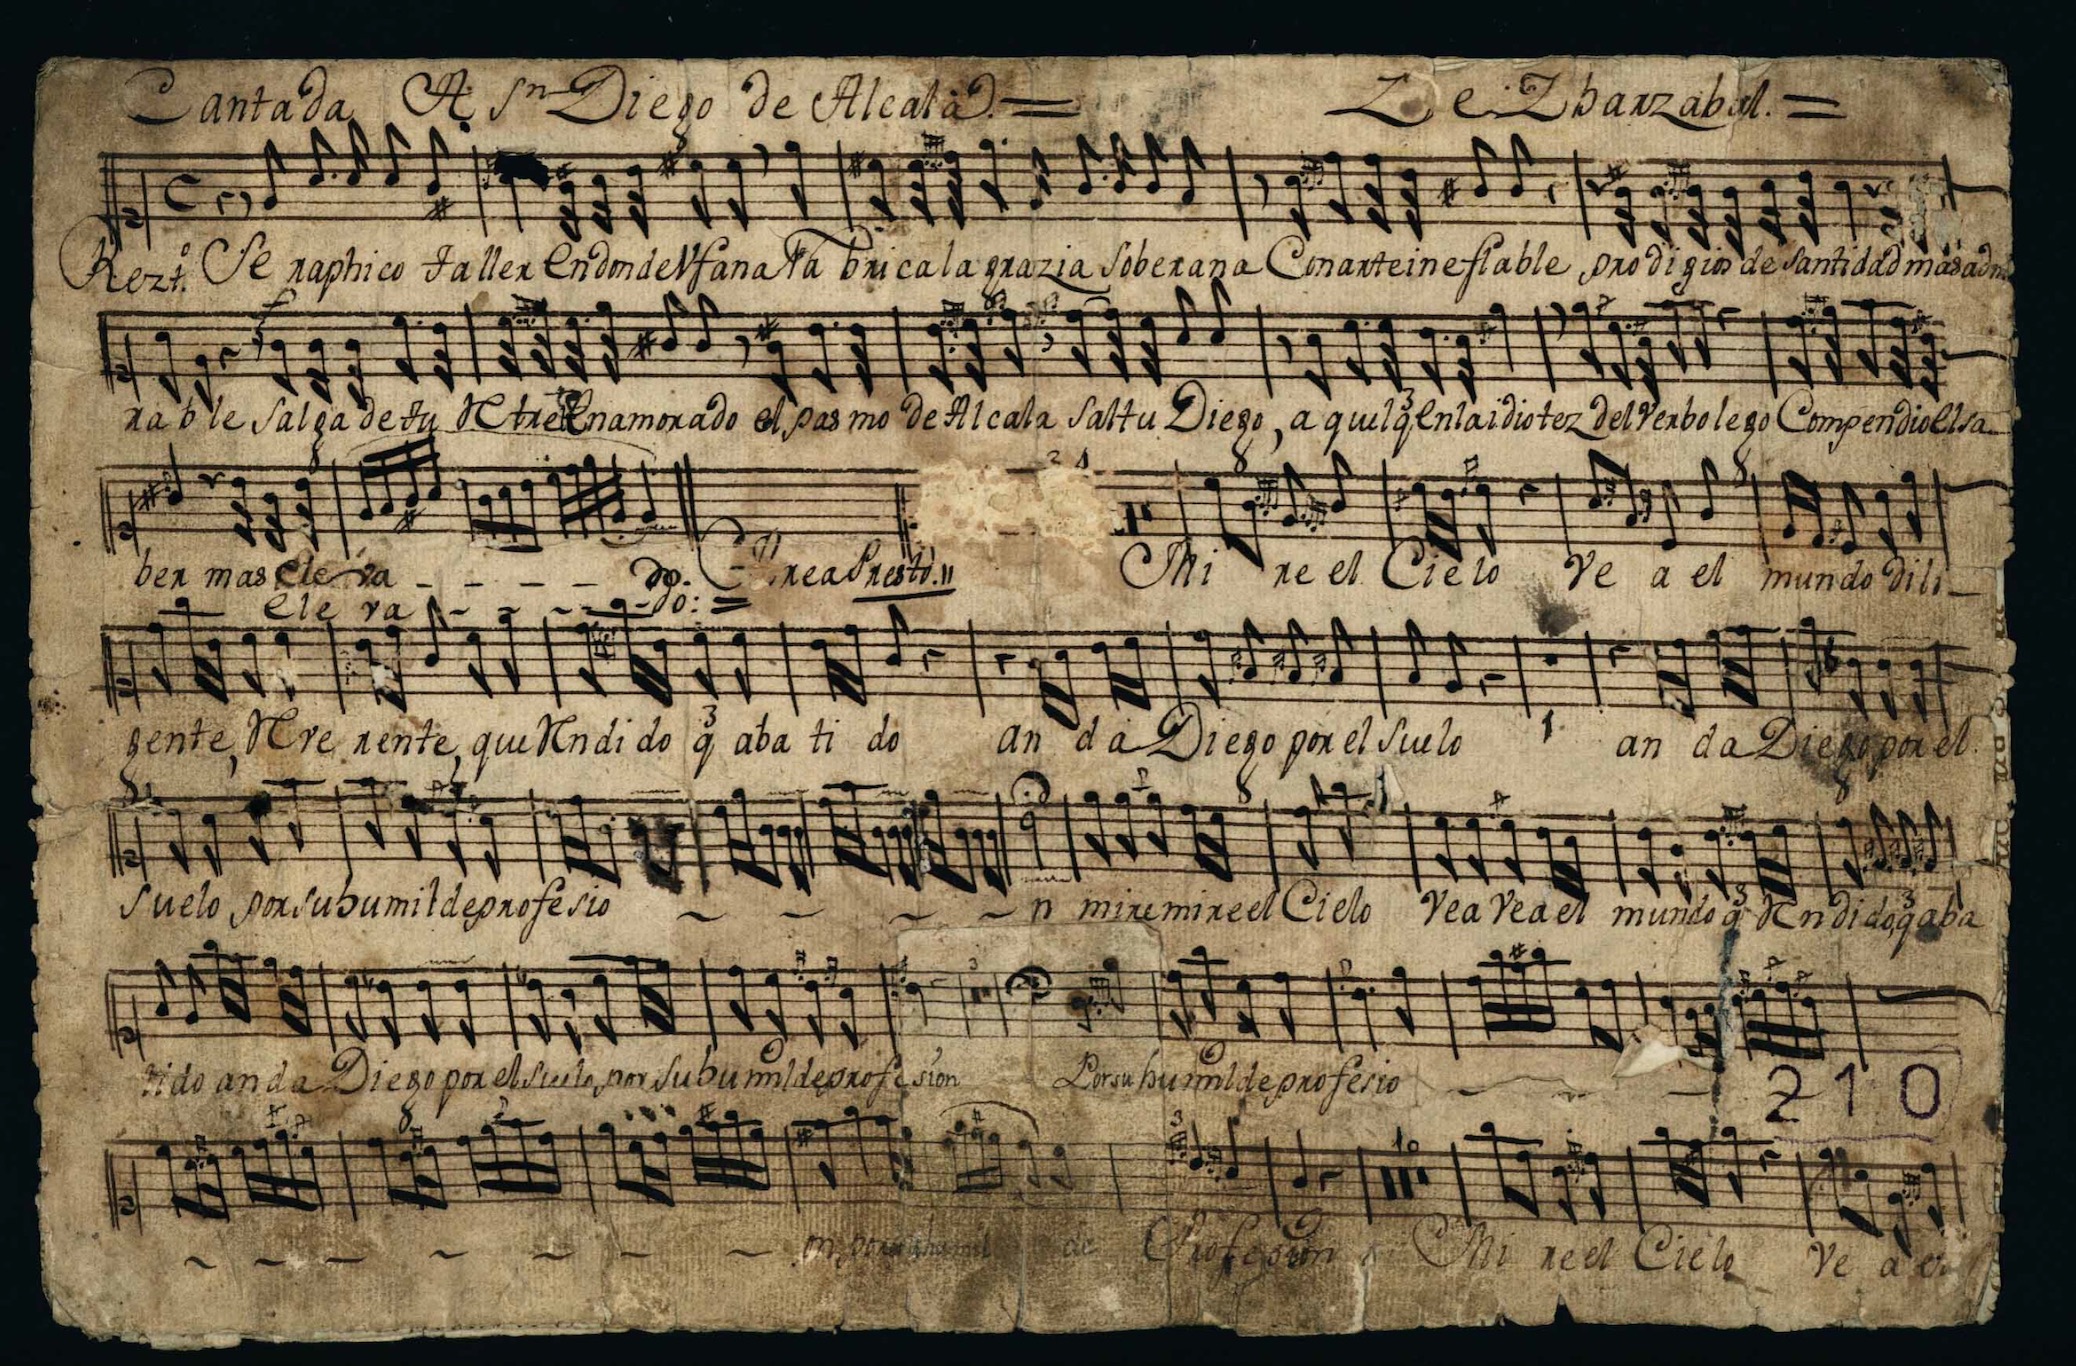 Cantada A Sn Diego de Alcalá. = De Zbarzabal. =
Rezt.º Se raphico taller en donde Vfana Fa brica la grazia soberana Con arte ineflable prodigios de santidad mas adm
ra ble salga de tu Enamorado el pasmo de Alcala sal tu Diego, a quel q̃ en la idiotez del Verbo lego Compendio el sa
ber mas ele va - - - - - do. Area Presto. Mi re el Cielo Ve a el mundo dili
ele va - - - - do: =
gente, Re ve rente, que Rn di do q̃ aba ti do an da Diego por el suelo 1 an da Diego por el
suelo por su humilde profesio - - - - n mire mire el Cielo Vea Vea el mundo q̃ Rn di do, q̃ aba
tido anda Diego por el suelo, por su humilde profe sion Por su humilde profesio - - -
210
- - - - - - - on por su humil de Profesion Mi re el Cielo Ve a el